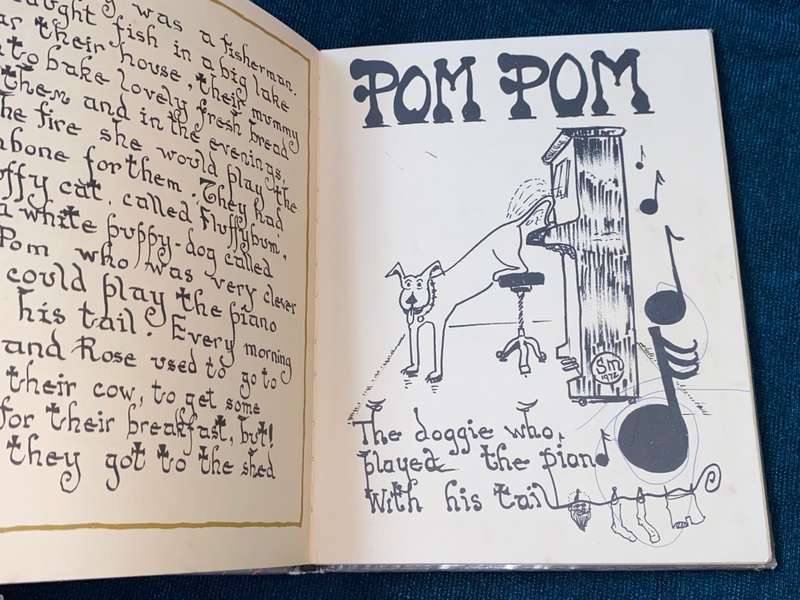 was a fisherman.
fish in a big lake
their house, their mummy
to bake lovely fresh bread
them and in the evenings,
the fire she would play the
for them. They had
cat, called Fluffybum,
a white puppy-dog called
Pom who was very clever
could play the piano
his tail. Every morning
and Rose used to go to
their cow, to get some
for their breakfast, but!
they got to the shed
POM POM
SM
1972
The doggie who
played the piano
with his tail